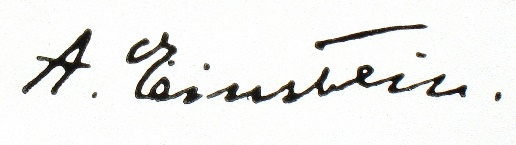 A. Einstein.